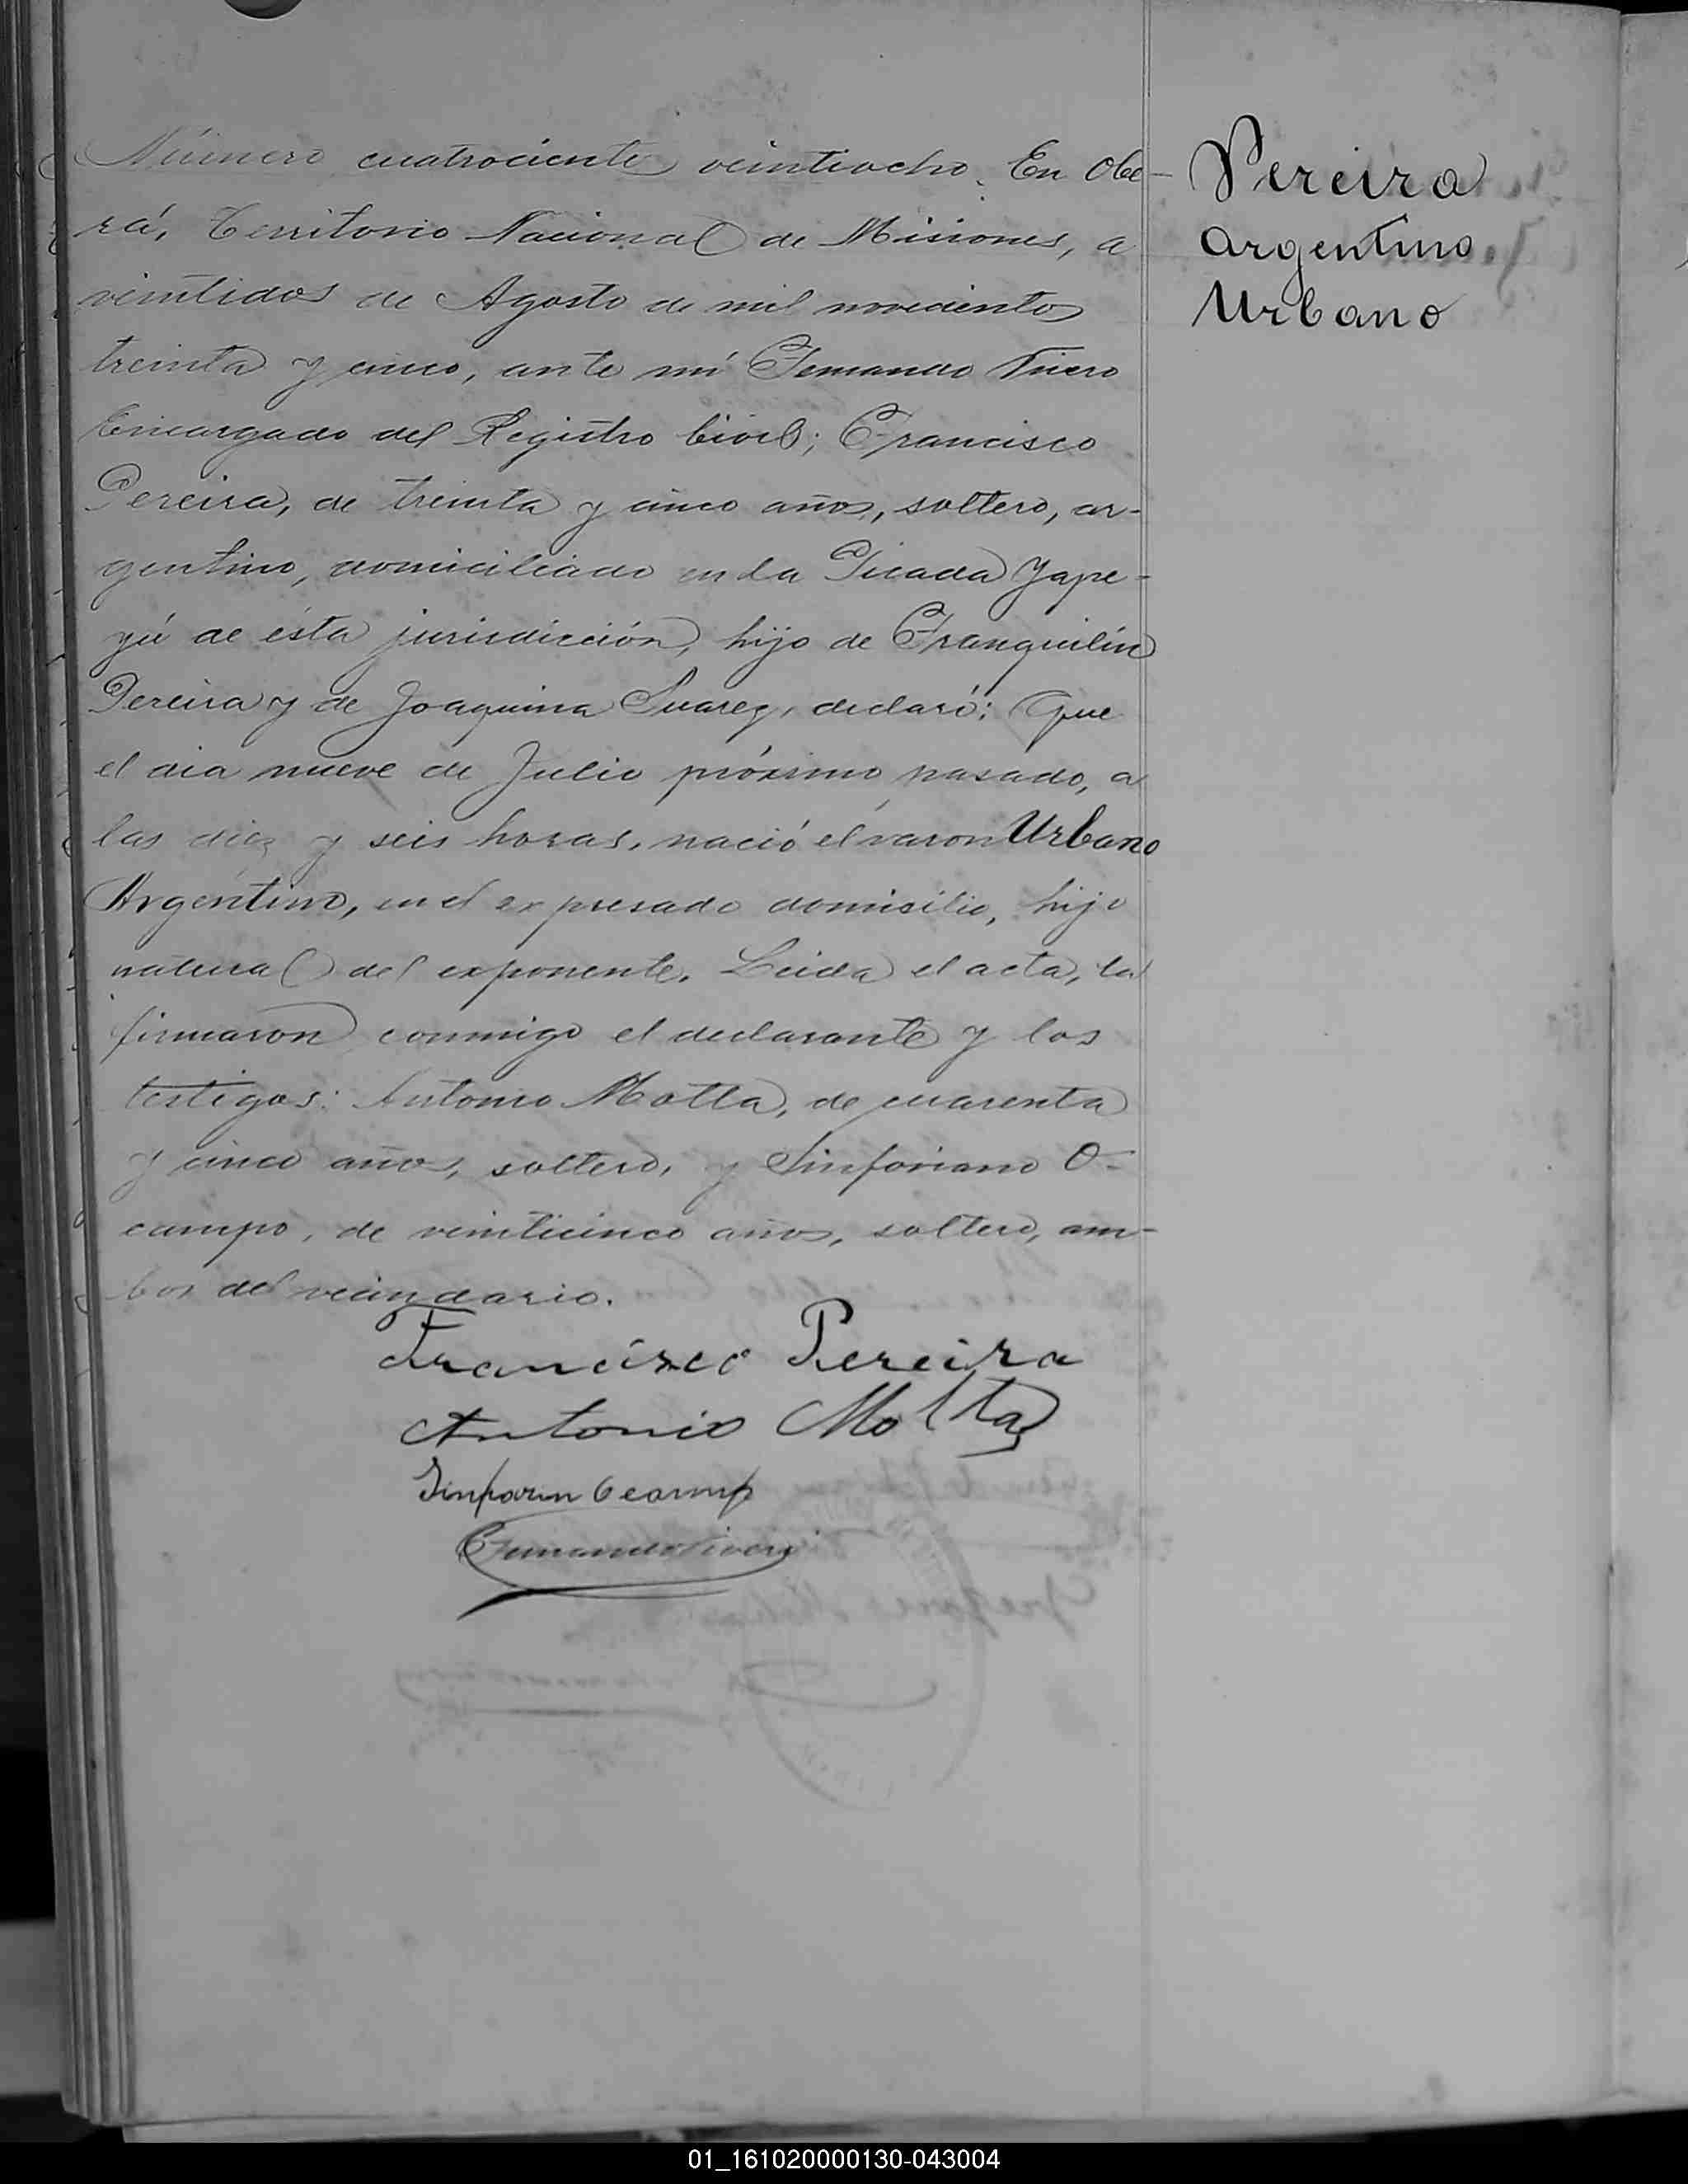 Número cuatrociento veintiocho. En Obe-
rá, Territorio Nacional de Misiones, a
veintidos de Agosto de mil novecientos
treinta y cinco, ante mí Fernando
Encargado del Registro Civil; Francisco
Pereira, de treinta y cinco años, soltero, ar-
gentino, domiciliado en la Picada Yape-
yú de ésta jurisdicción, hijo de Franquilín
Pereira y de Joaquina Suarez, declaró: Que
el dia nueve de Julio próximo pasado, a
las diez y seis horas, nació el varon Urbano
Argentino, en el expresado domicilio, hijo
natural del exponente. Leida el acta, la
firmaron conmigo el declarante y los
testigos: Antonio Motta, de cuarenta
y cinco años, soltero, y Sinforiano O-
campo, de veinticinco años, soltero, am-
bos del vecindario.
Francisco Pereira
Antonio Motta
Sinforin Ocamp
Pereira
Argentino
Urbano
01_161020000130-043004